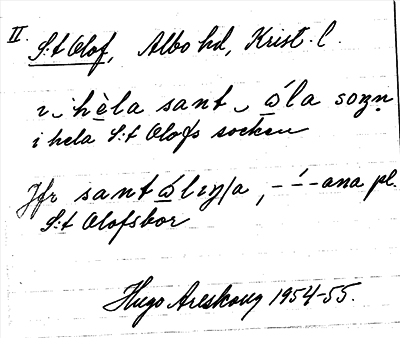 II. S:t Olof, Albo hd, Krist. l.
ı ‿ hèla sant ‿ ó̲la sozn̥
i hela S:t Olofs socken
Jfr sant ó̲lıŋ/a, -–́-ana pl.
S:t Olofsbor
Hugo Areskoug 1954-55.